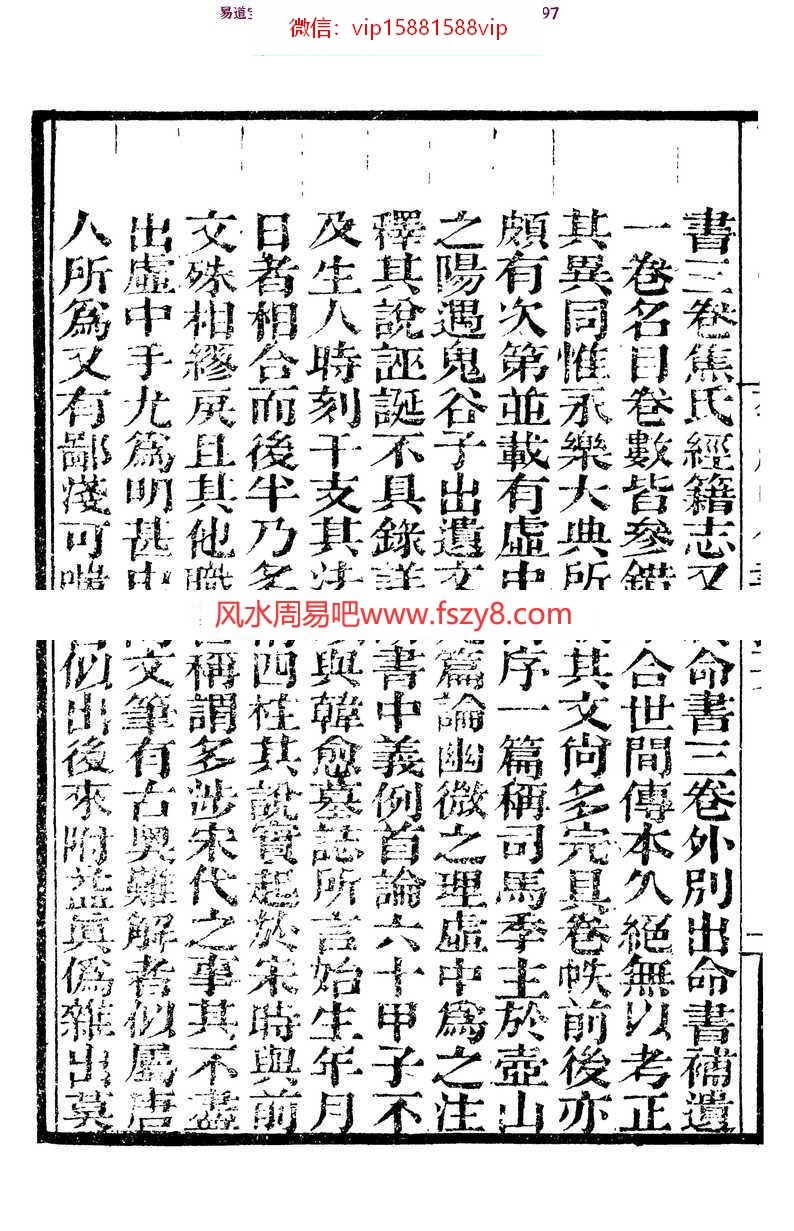 易道
97
微信：vip15881588vip
書三卷焦氏經籍志又命書三卷外別出命書補遺
一卷名目卷數皆參錯合世間傳本久絕無以考正
其異同惟永樂大典所其文尚多完具卷帙前後亦
頗有次第並載有虛中序一篇稱司馬季主於壺山
之陽遇鬼谷子出遺文篇論幽微之理虛中爲之注
釋其說誣誕不具錄詳書中義例首論六十甲子不
及生人時刻干支其法與韓愈墓誌所言始生年月
日者相合而後半乃多四柱其說實起於宋時與前
文殊相繆戾且其他職稱謂多涉宋代之事其不盡
出虛中手尤爲明甚中文筆有古奧難解者似屬唐
人所爲又有鄙淺可嗤似出後來附益眞僞雜出莫
风水周易吧www.fszy8.com